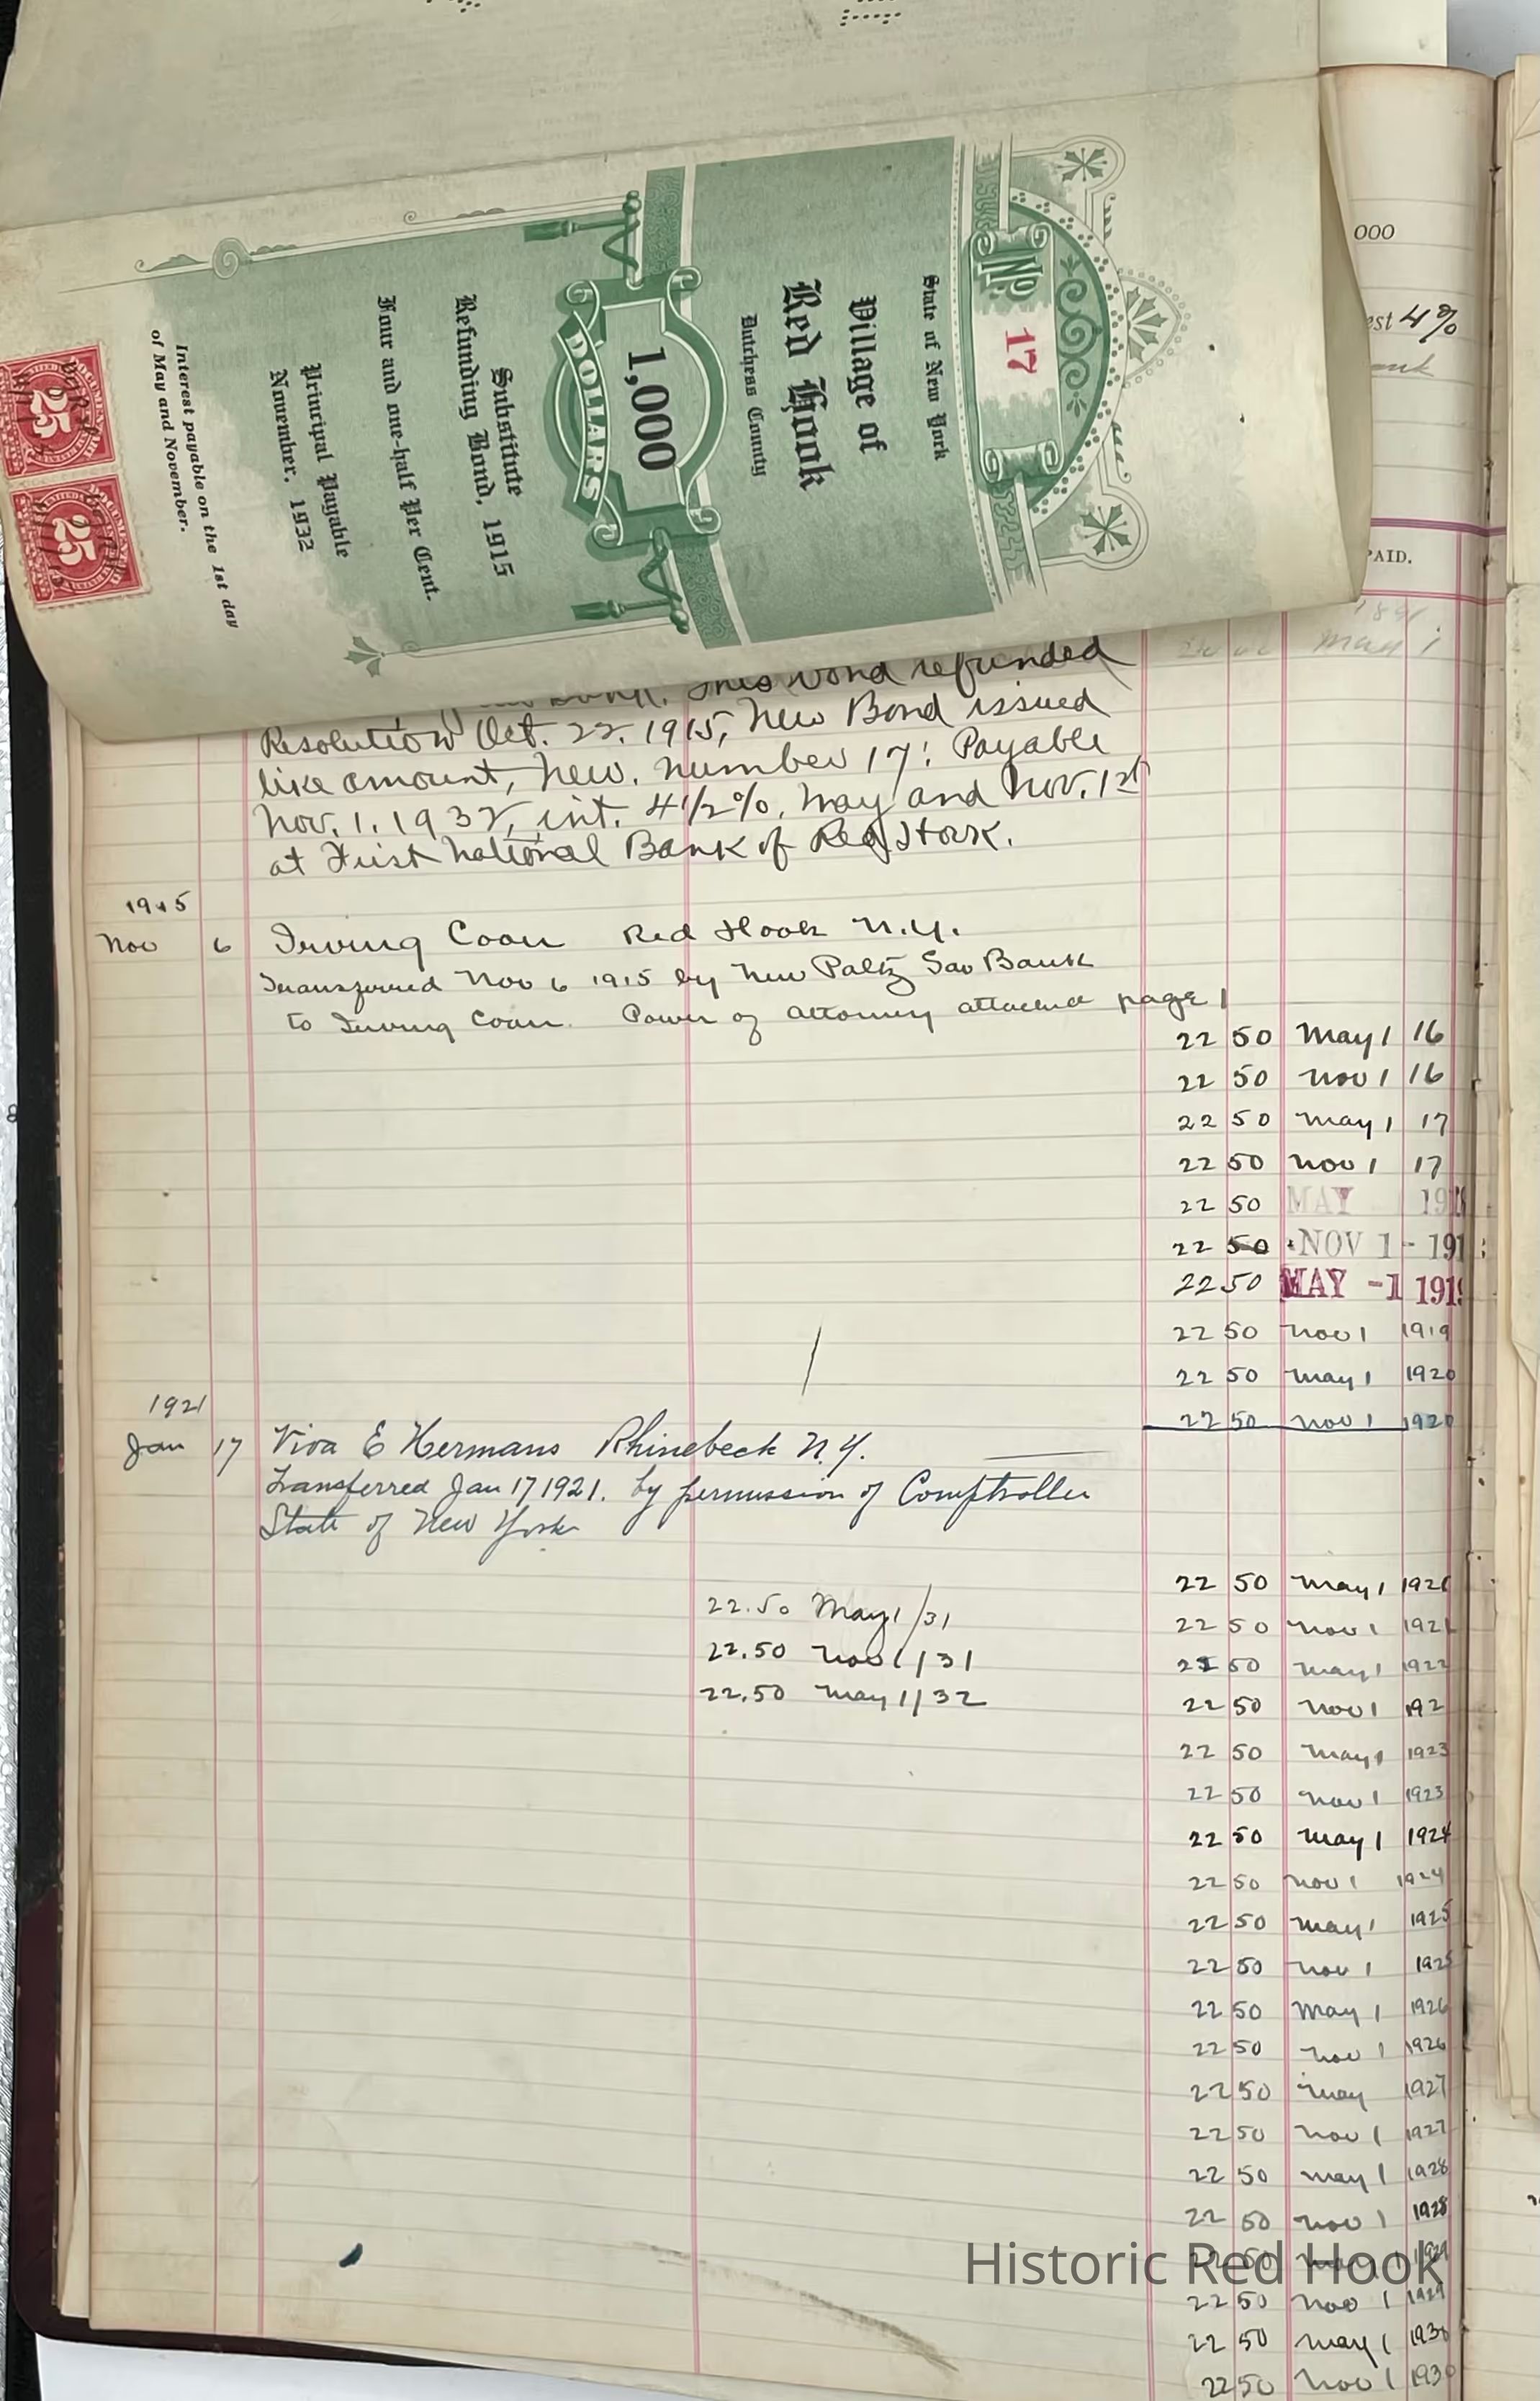 No. 17
State of New York
Village of
Red Hook
Dutchess County
1,000
DOLLARS
Substitute
Refunding Bond, 1915
Four and one-half Per Cent.
Principal Payable
November. 1932
Interest payable on the 1st day
of May and November.
25
25
000
est 4%
PAID.
May 1
This Bond refunded
Resolution Oct. 22. 1915, New Bond issued
like amount, New. number 17! Payable
Nov. 1. 1932, int. 4 1/2 %. May and Nov. 1st
at First National Bank of Red Hook.
1915
Nov 6 Irving Coon Red Hook N.Y.
Transferred Nov 6 1915 by New Paltz Sav Bank
to Irving Coon. Power of attorney attached page 1
22 50 May 1 16
22 50 Nov 1 16
22 50 May 1 17
22 50 Nov 1 17
22 50 MAY 191
22 50 NOV 1 - 191
22 50 MAY -1 191
22 50 Nov 1 1919
22 50 May 1 1920
22 50 Nov 1 1920
1921
Jan 17 Viva E Hermans Rhinebeck N.Y.
Transferred Jan 17 1921. by permission of Comptroller
State of New York
22 50 May 1 1921
22.50 May 1/31
22 50 Nov 1 1921
22.50 Nov 1/31
22 50 May 1 1922
22.50 May 1/32
22 50 Nov 1 192
22 50 May 1 1923
22 50 Nov 1 1923
22 50 May 1 1924
22 50 Nov 1 1924
22 50 May 1 1925
22 50 Nov 1 1925
22 50 May 1 1926
22 50 Nov 1 1926
22 50 May 1927
22 50 Nov 1 1927
22 50 May 1 1928
22 50 Nov 1 1928
22 50 May 1 1929
Historic Red Hook
22 50 Nov 1 1929
22 50 May 1 1930
22 50 Nov 1 1930